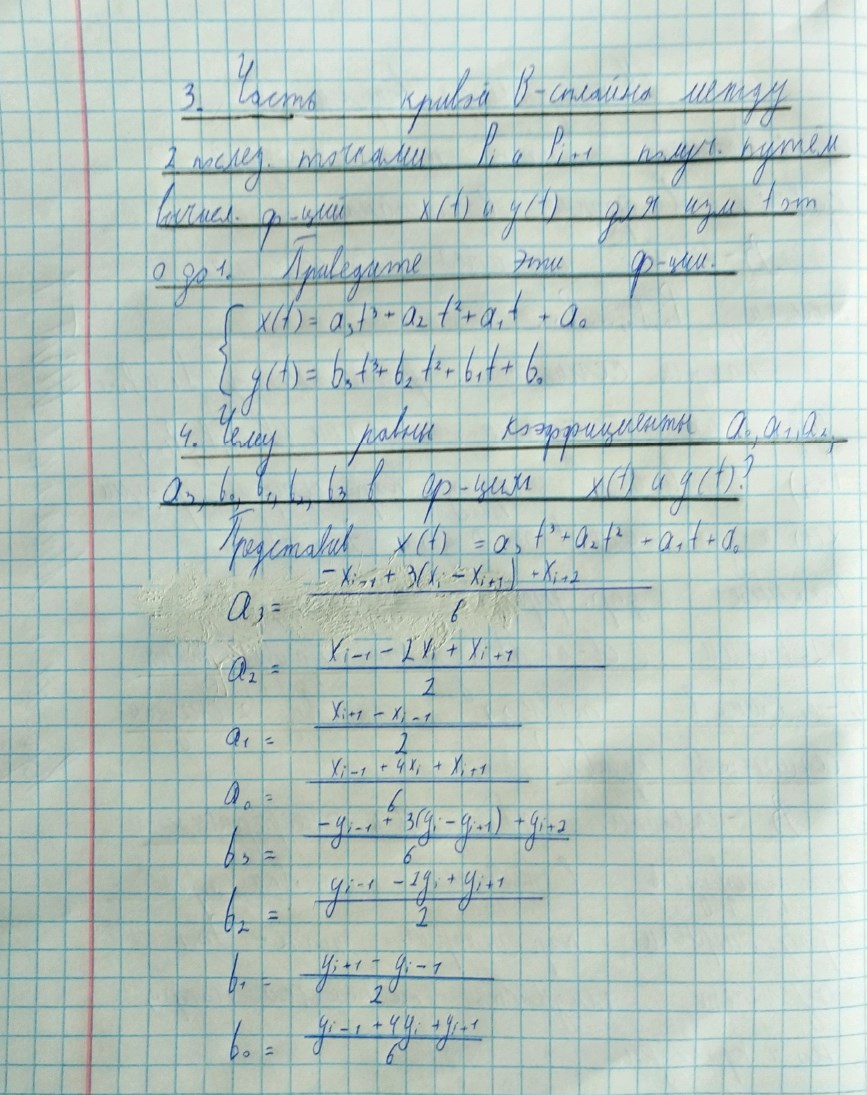 3. Часть кривой B-сплайна между
2 послед. точками Pi и Pi+1 получ. путём
вычисл. ф-ции x(t) и y(t) для изм. t от
0 до 1. Приведите эти ф-ции.
x(t) = a₃t³ + a₂t² + a₁t + a₀
y(t) = b₃t³ + b₂t² + b₁t + b₀
4. Чему равны коэффициенты a₀, a₁, a₂,
a₃, b₀, b₁, b₂, b₃ в ф-циях x(t) и y(t)?
Представив x(t) = a₃t³ + a₂t² + a₁t + a₀
a₃ = (-xi-1 + 3(xi - xi+1) + xi+2) / 6
a₂ = (xi-1 - 2xi + xi+1) / 2
a₁ = (xi+1 - xi-1) / 2
a₀ = (xi-1 + 4xi + xi+1) / 6
b₃ = (-yi-1 + 3(yi - yi+1) + yi+2) / 6
b₂ = (yi-1 - 2yi + yi+1) / 2
b₁ = (yi+1 - yi-1) / 2
b₀ = (yi-1 + 4yi + yi+1) / 6